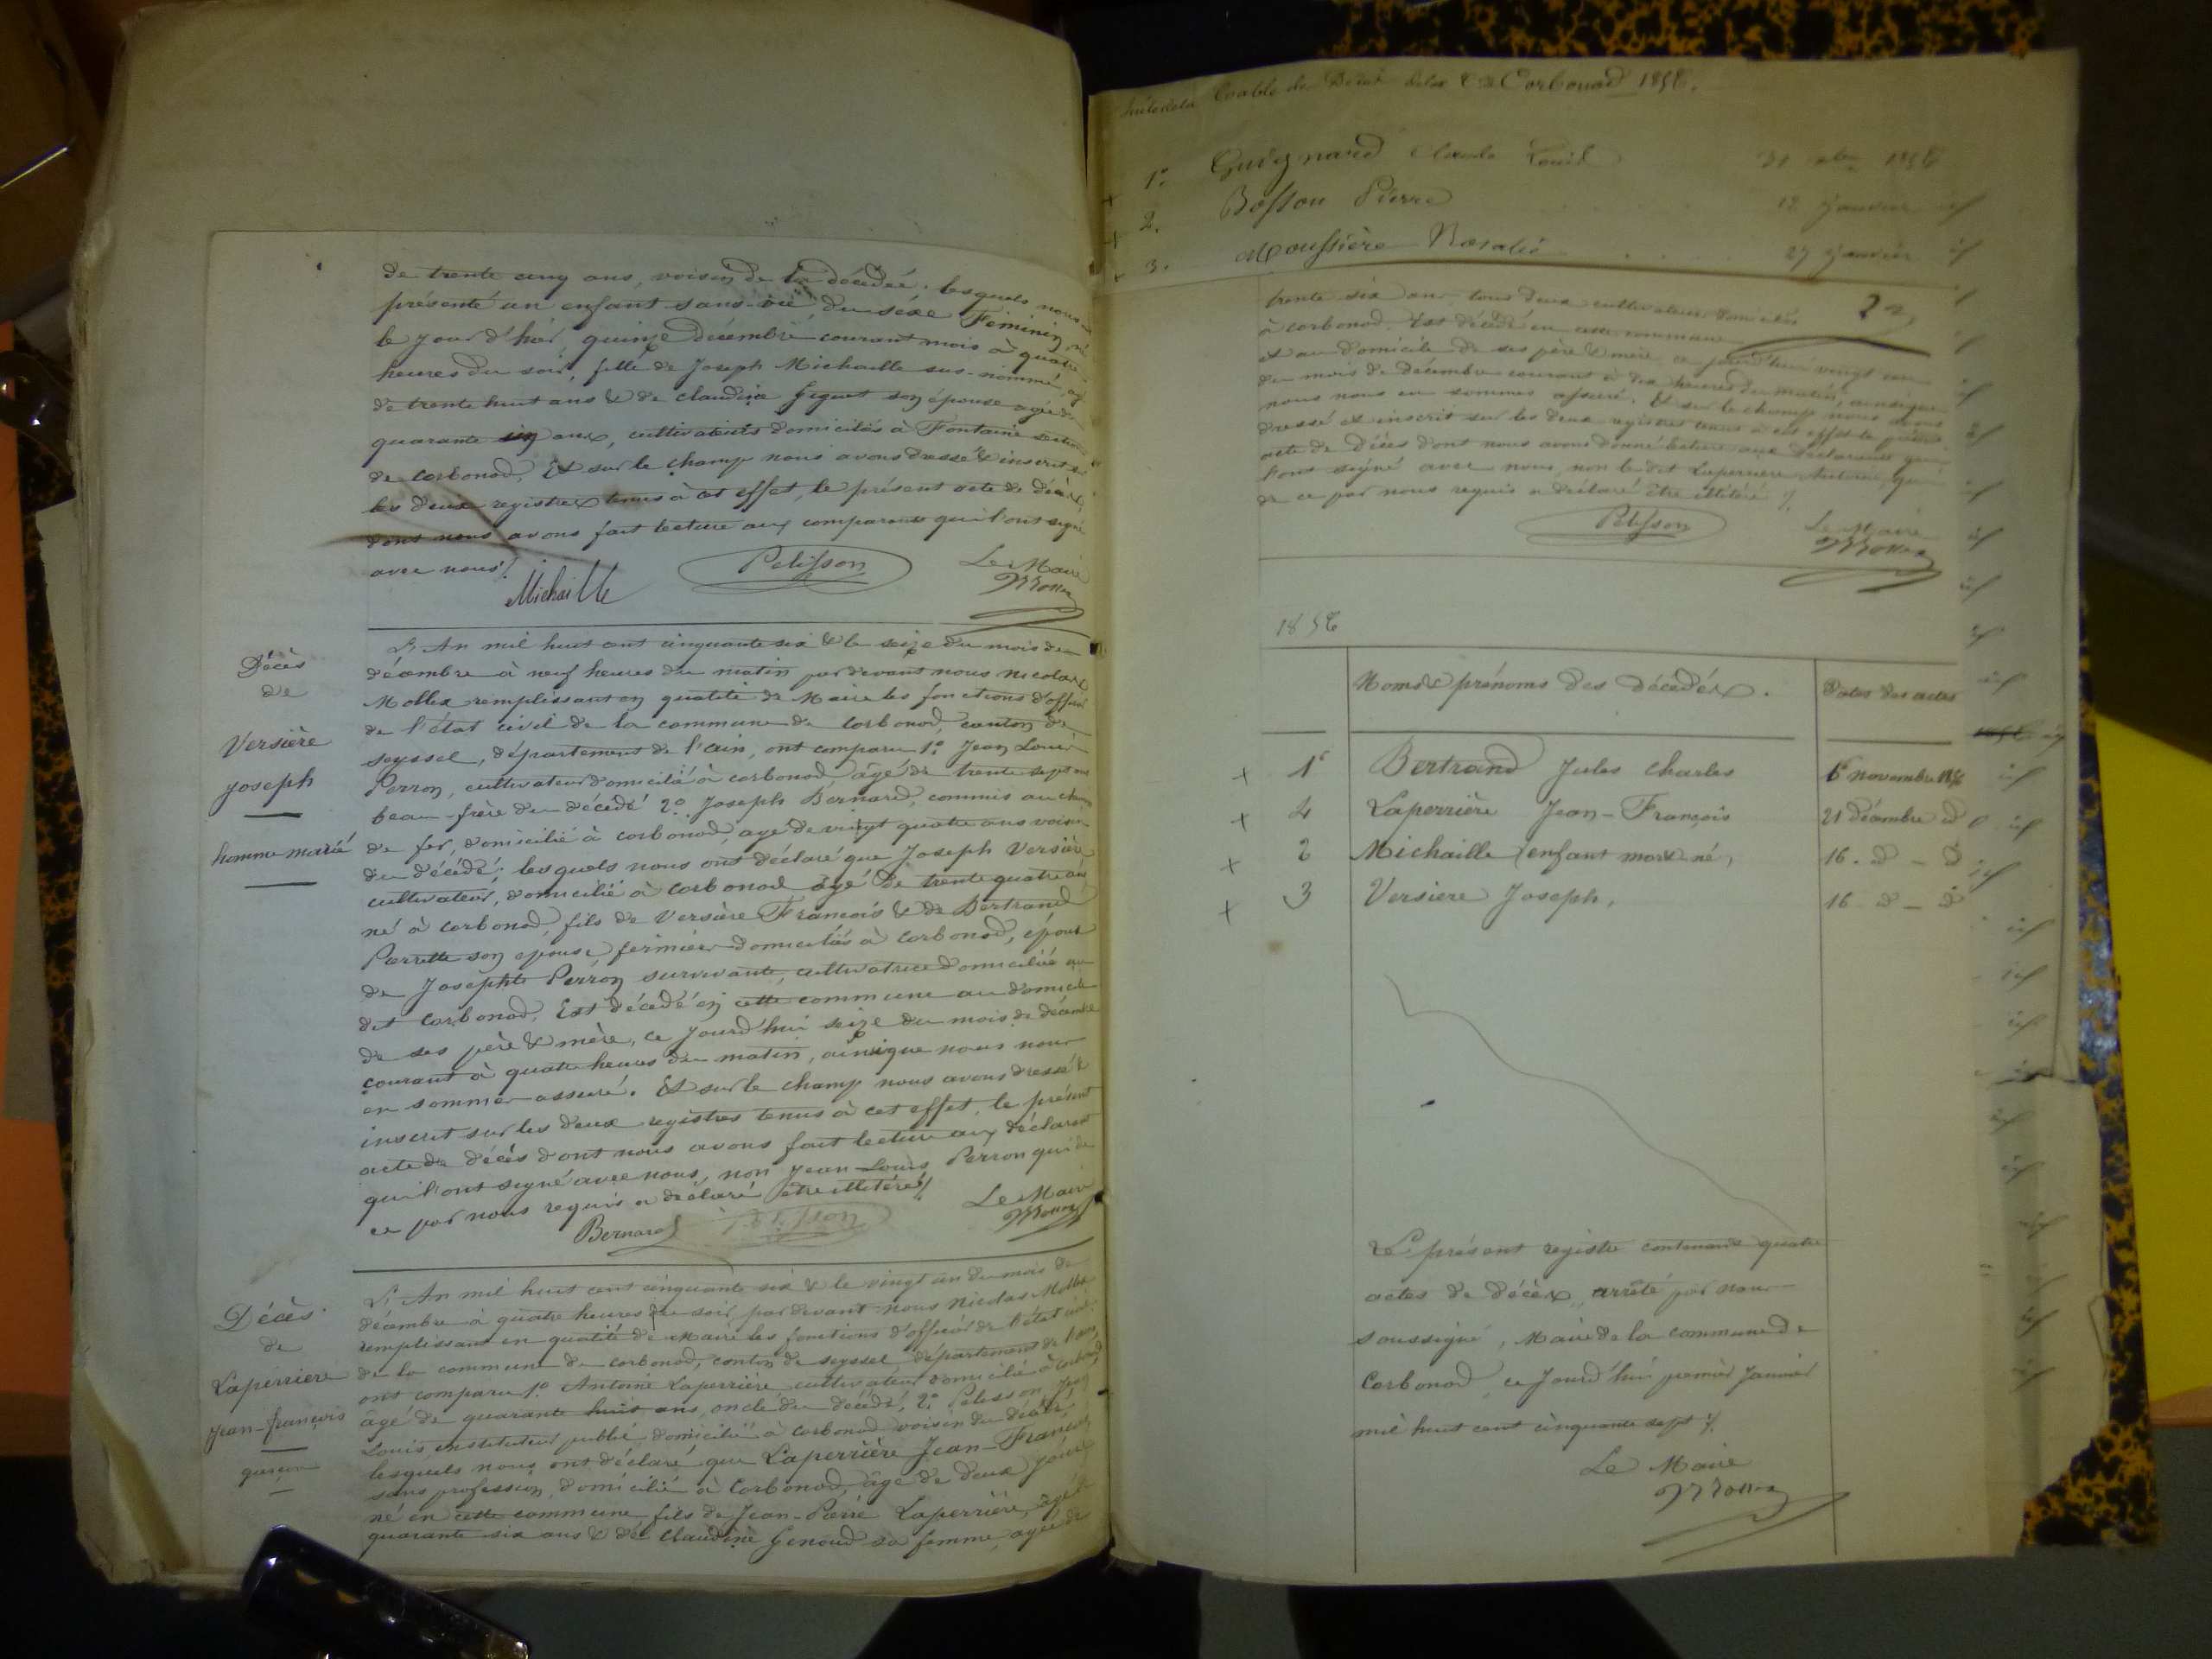 de trente cinq ans, voisin de la décédée; lesquels nous
présenté un enfant sans-vie, du séxe Féminin, né
le jour d'hier, quinze Décembre courant mois à quatre
heures du soir, fille de Joseph Michaille sus-nommé, agé
de trente huit ans & de Claudine Giguet son épouse agée de
quarante ans, cultivateurs domiciliés à Fontaine section
de Corbonod. Et sur le champ nous avons dressé & inscrit sur
les deux registres tenus à cet effet, le présent acte de décès,
dont nous avons fait lecture aux comparants qui l'ont signé
avec nous./.
Michaille Pelisson Le Maire
Mollex
Décès
de
Versière
Joseph
homme marié
L'An mil huit cent cinquante six & le seize du mois de
décembre à neuf heures du matin par devant nous Nicolas
Mollex remplissant en qualité de Maire les fonctions d'officier
de l'état civil de la commune de Corbonod, canton de
Seyssel, département de l'ain, ont comparu 1° Jean Louis
Perron, cultivateur domicilié à corbonod âgé de trente sept ans
beau-frère du décédé 2° Joseph Bernard, commis au chemin
de fer, domicilié à corbonod, agé de vingt quatre ans voisin
du décédé; lesquels nous ont déclaré que Joseph Versière
cultivateur, domicilié à Corbonod âgé de trente quatre ans
né à Corbonod, fils de Versière François & de Bertrand
Pierrette son épouse, fermiers domiciliés à Corbonod, époux
de Josephte Perron survivante, cultivatrice domiciliée au
dit Corbonod. Est décédé en cette commune au domicile
de ses père & mère, ce jourd'hui seize du mois de décembre
courant à quatre heures du matin, ainsi que nous nous
en sommes assuré. Et sur le champ nous avons dressé &
inscrit sur les deux registres tenus à cet effet, le présent
acte de décès dont nous avons fait lecture aux déclarants
qui l'ont signé avec nous, non Jean-Louis Perron qui de
ce par nous requis a déclaré être illitéré./.
Bernard Le Maire
Mollex
Décès
de
Laperriere
Jean-françois
garçon
L'An mil huit cent cinquante six & le vingt un du mois de
décembre à quatre heures du soir, par devant nous Nicolas Mollex
remplissant en qualité de Maire les fonctions d'officier de l'état civil
de la commune de corbonod, canton de seyssel département de l'ain,
ont comparu 1° Antoine Laperrière cultivateur domicilié à Corbonod
âgé de quarante huit ans, oncle du décédé, 2° Pelisson Jean
Louis instituteur public, domicilié à Corbonod voisin du décédé,
lesquels nous ont déclaré que Laperrière Jean-François
sans profession, domicilié à Corbonod, âgé de deux jours
né en cette commune, fils de Jean-Pierre Laperrière, âgé de
quarante six ans & de Claudine Genoud sa femme, agée de
Suite de la Table de Décès de la Cne Corbonod 1856.
+ 1° Guignard Claude Louis 31 1856
+ 2. Bosson Pierre 12 Janvier id
+ 3. Moussière Rosalie 27 Janvier id
trente six ans tous deux cultivateurs domiciliés
à corbonod. Est décédé en cette commune
et au domicile de ses père & mère ce jourd'hui vingt un
du mois de Décembre courant à dix heures du matin, ainsi que
nous nous en sommes assuré. Et sur le champ nous avons
dressé et inscrit sur les deux registres tenus à cet effet le présent
acte de Décès dont nous avons donné lecture aux Déclarants qui
l'ont signé avec nous, non le dit Laperriere Antoine, qui
de ce par nous requis a déclaré être illitéré ./.
Pelisson Le Maire
Mollex
1856
Noms & prénoms des décédés. Dates des actes
+ 1er Bertrand Jules Charles 6 novembre 1856
+ 4 Laperrière Jean-François 21 Décembre d°
+ 2 Michaille (enfant mort né) 16. d° - d°
+ 3 Versiere Joseph, 16 d° - d°
Le présent registre contenant quatre
actes de décès, arrêté par nous
soussigné, Maire de la commune de
Corbonod, ce jourd'hui premier Janvier
mil huit cent cinquante sept ./.
Le Maire
Mollex